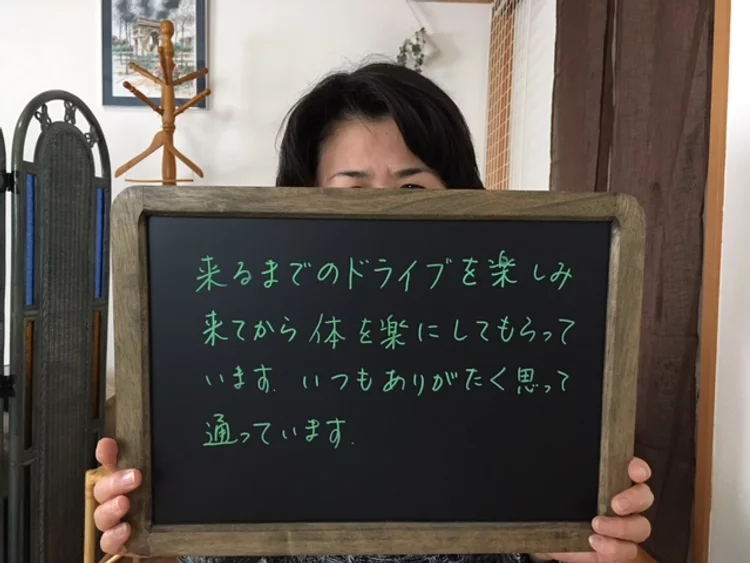 来るまでのドライブを楽しみ
来てから体を楽にしてもらって
います. いつもありがたく思って
通っています.